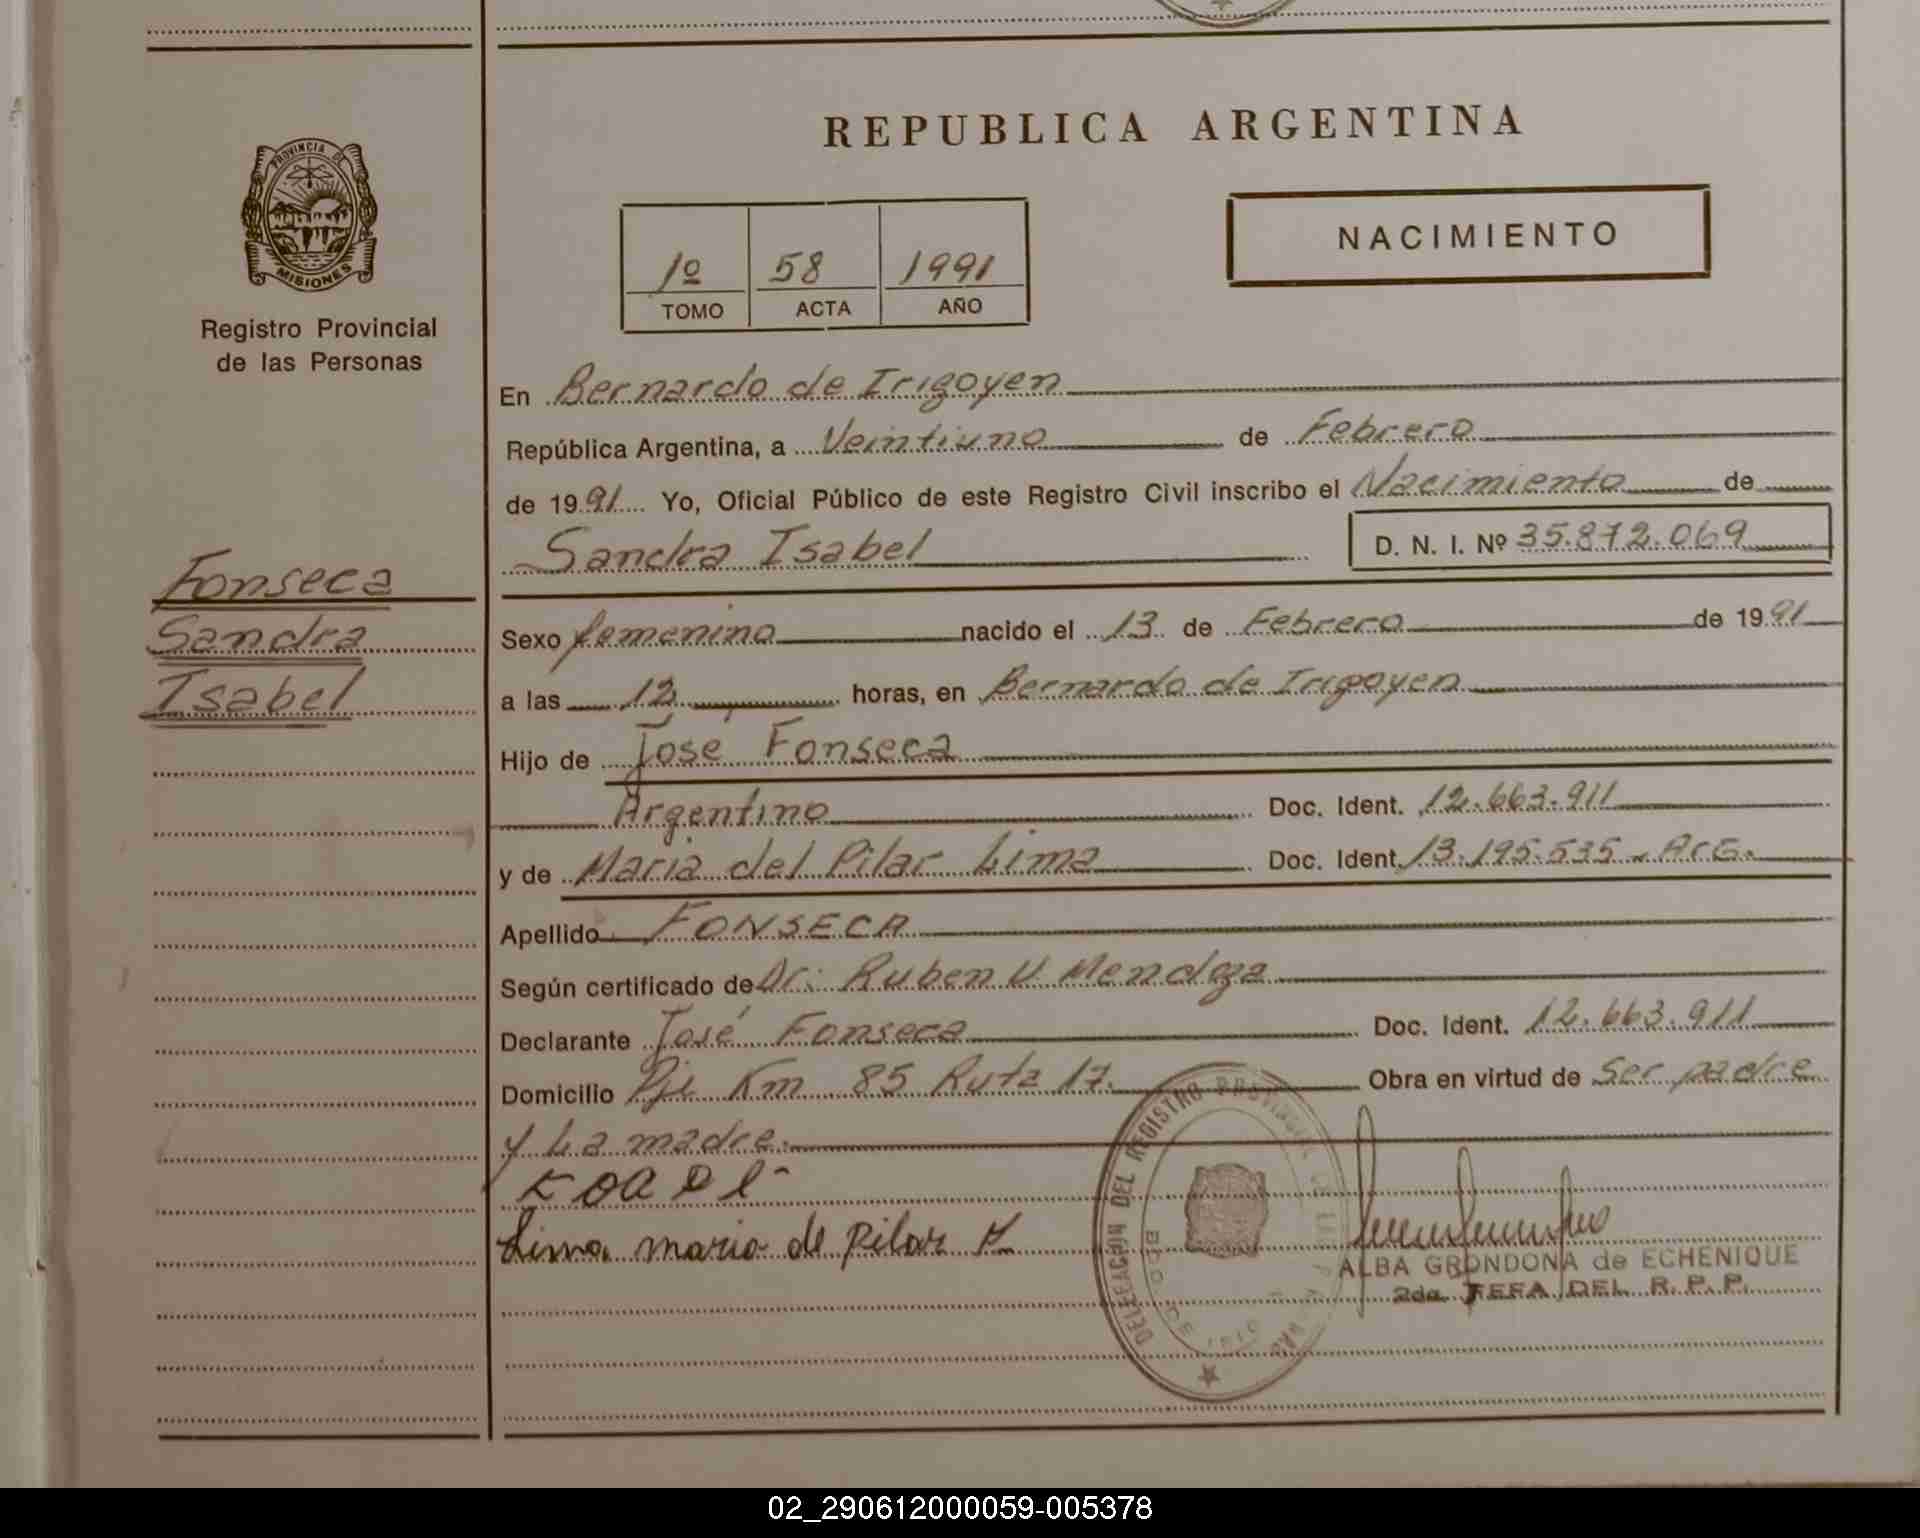 REPUBLICA ARGENTINA
PROVINCIA DE
MISIONES
Registro Provincial
de las Personas
1º 58 1991
TOMO ACTA AÑO
NACIMIENTO
En Bernardo de Irigoyen
República Argentina, a Veintiuno de Febrero
de 1991 Yo, Oficial Público de este Registro Civil inscribo el Nacimiento de
Sandra Isabel D. N. I. Nº 35.872.069
Fonseca
Sandra
Isabel
Sexo femenino nacido el 13 de Febrero de 1991
a las 12 horas, en Bernardo de Irigoyen
Hijo de José Fonseca
Argentino Doc. Ident. 12.663.911
y de Maria del Pilar Lima Doc. Ident. 13.195.535 - Arg.
Apellido FONSECA
Según certificado de Dr: Ruben V. Mendoza
Declarante José Fonseca Doc. Ident. 12.663.911
Domicilio Pje Km 85 Ruta 17. Obra en virtud de Ser padre
y La madre.
Lima maria de pilar
DELEGACION DEL REGISTRO PROVINCIAL DE LAS PERSONAS
BDO DE IRIG
ALBA GRONDONA de ECHENIQUE
2da. JEFA DEL R. P. P.
02_290612000059-005378